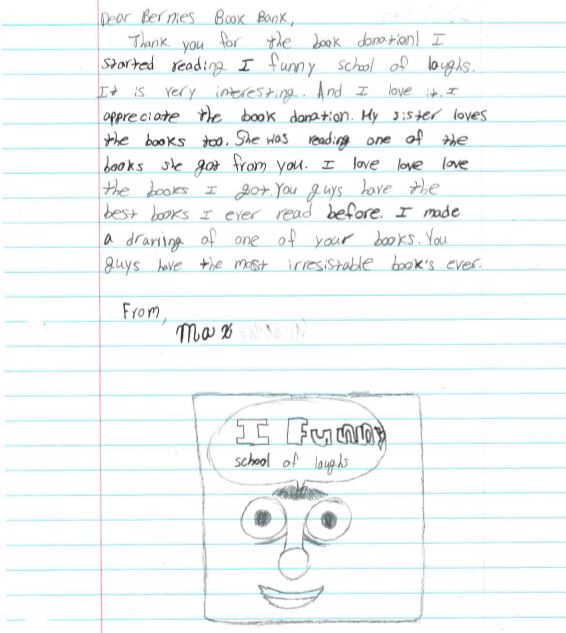 Dear Bernies Book Bank,
Thank you for the book donation! I
started reading I funny school of laughs.
It is very interesting. And I love it. I
appreciate the book donation. My sister loves
the books too. She was reading one of the
books she got from you. I love love love
the books I got. You guys have the
best books I ever read before. I made
a drawing of one of your books. You
guys have the most irresistable book's ever.
From,
Max
I Funny
school of laughs